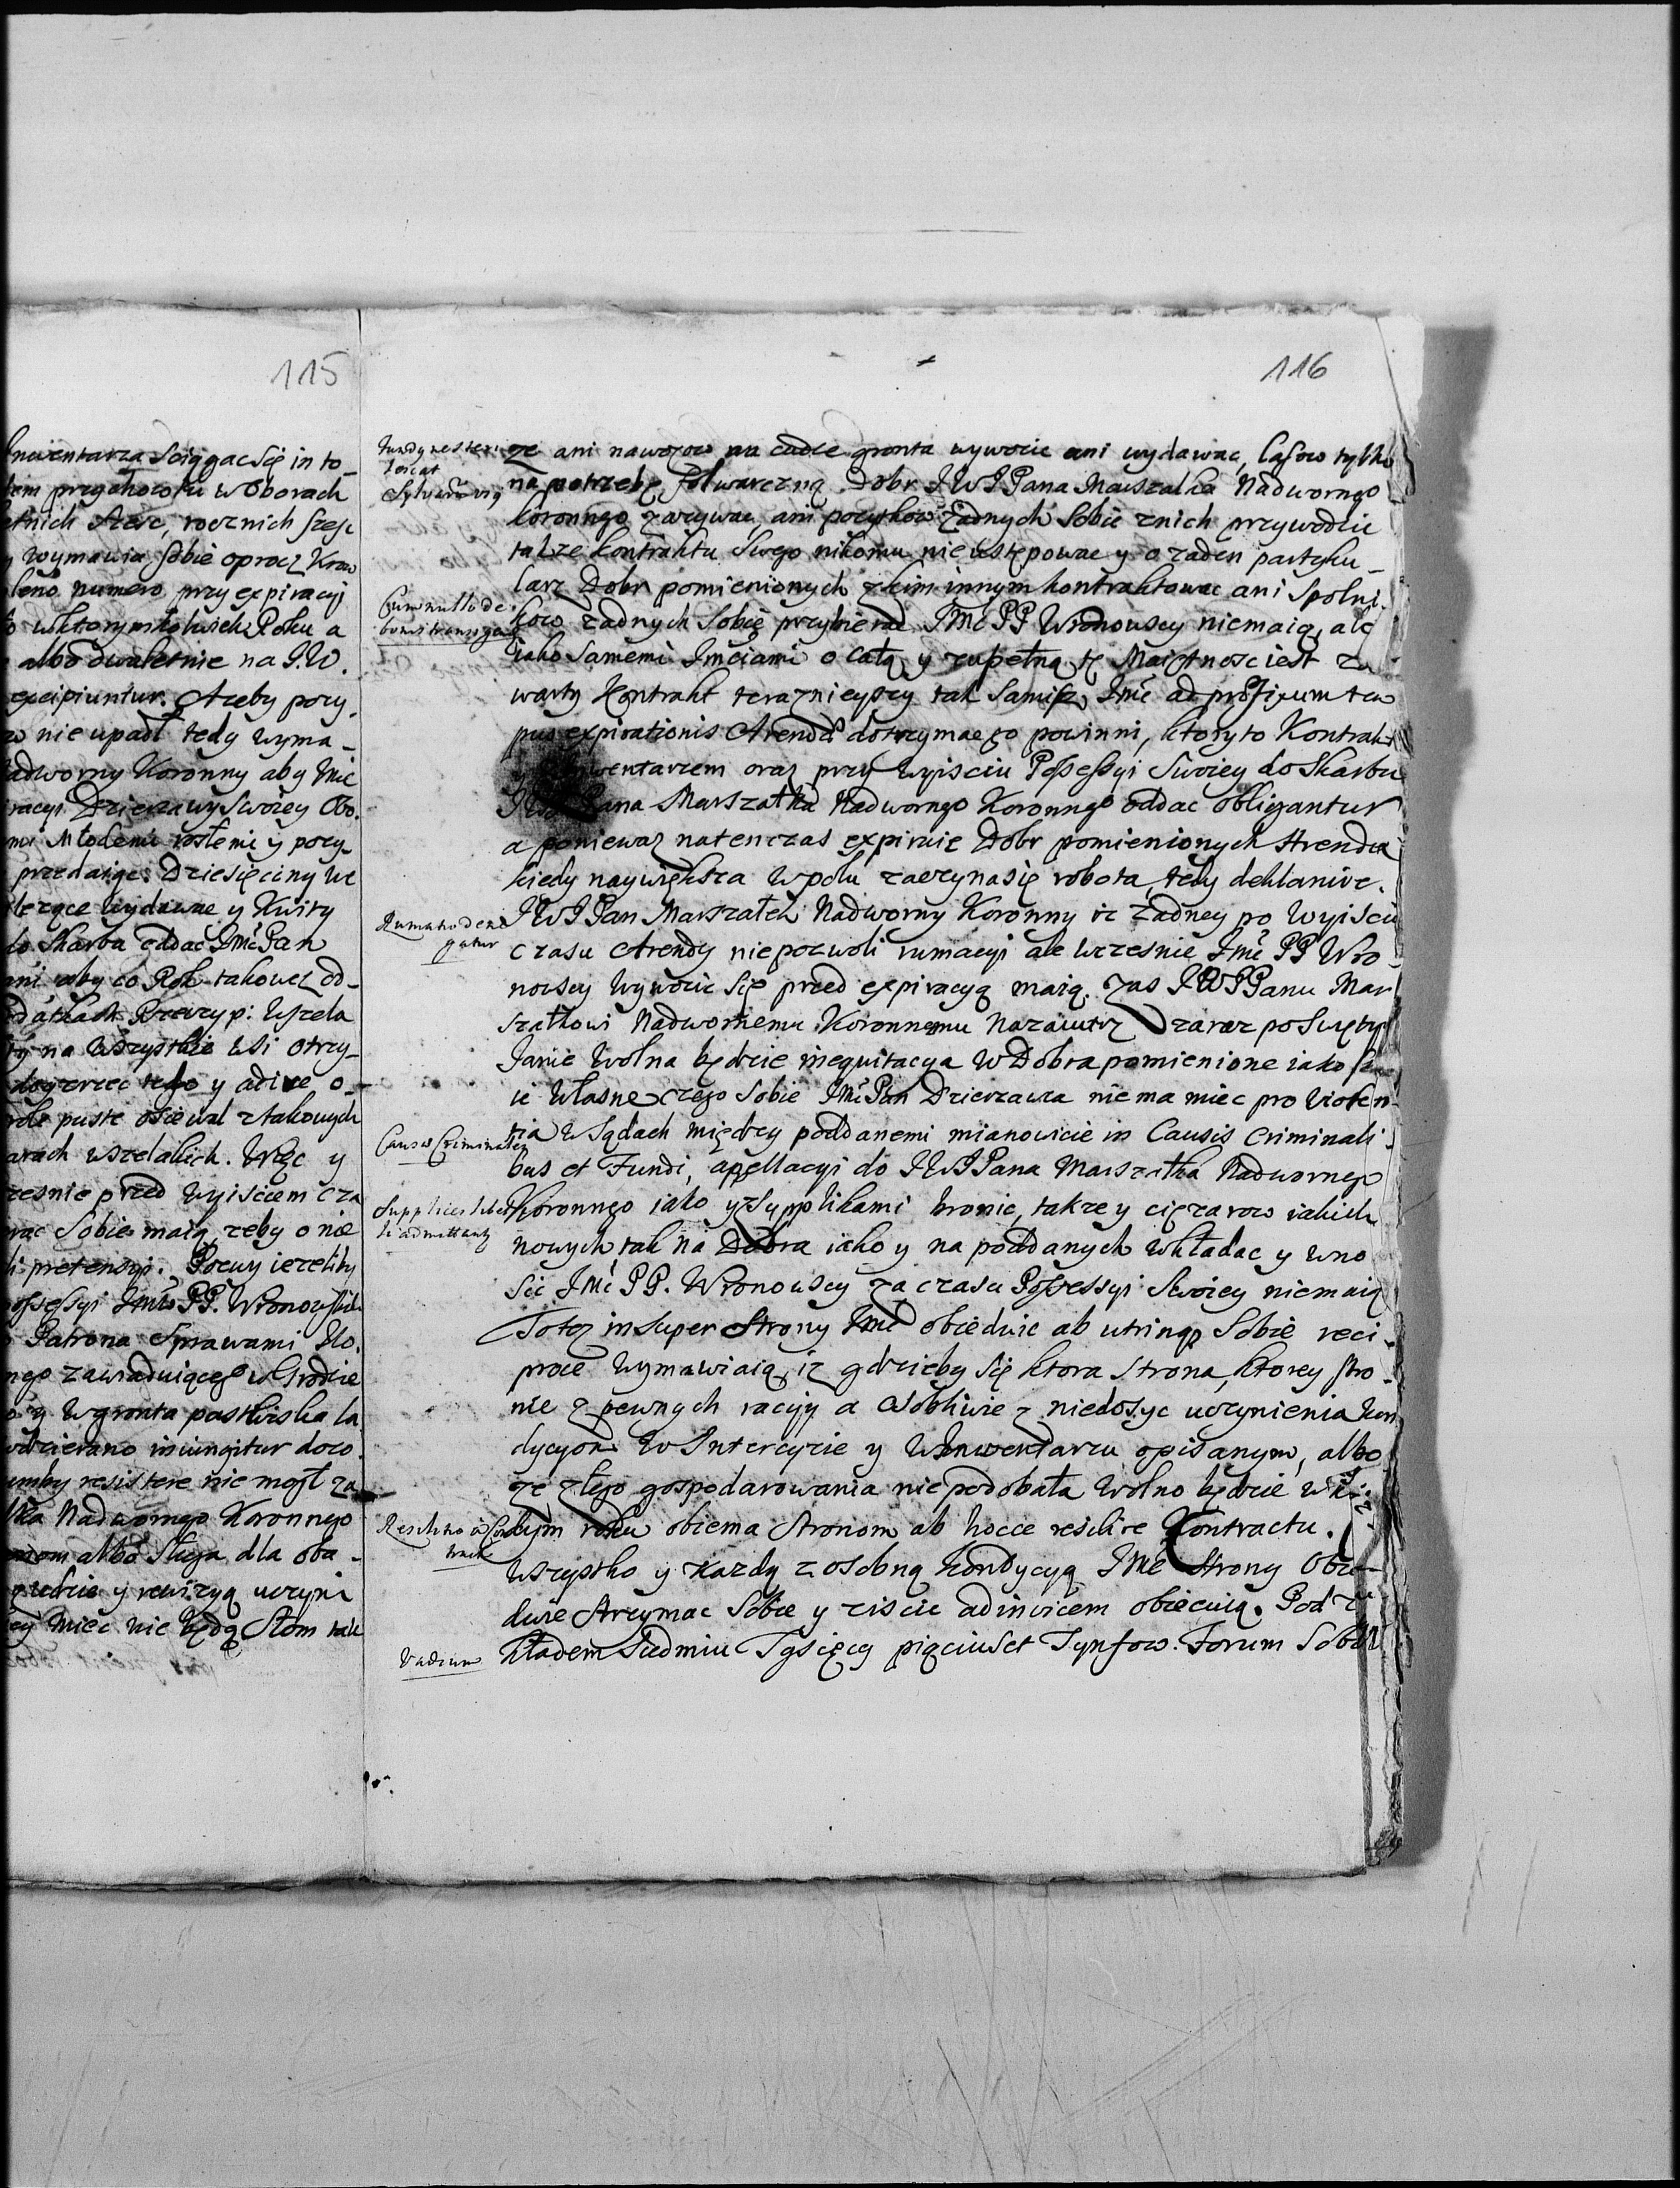 115
nwentarza sciągac się in to_
tem przychowku w Oborach
letnich szesc, rocznich szesc
y wymawia sobie oprocz Krow
leno numero przy expiracyi
o wktorymkolwiek Roku a
albo dwuletnie na J.W.
excipiuntur. Azeby pozy_
nie upadł tedy wyma_
adworny Koronny aby Imć
racyi Dzierzawy Swoiey Obo_
mi Młodemi rosłemi y pozy
przedaiąc. Dziesięciny we
lezące wydawac y Kwity
do Skarbu oddac Imć Pan
ani aby co Rok takowez od_
na Wszystkie Wsi otrzy_
role puste osiewał z takowych
arach wszelakich. Więc y
zesnie przed wyisciem cza
wac Sobie maią, zeby o nie
li pretensyi. Poczwy iezeliby
ossessyi Imć PP. Wronowskich
Patrona Sprawami Uo_
nego zawiaduiącego w Grodzie
y w gronta pastwiska la
odzierano iniungitur dozo
umby resistere nie mogł za
łka Nadwornego Koronnego
albo sługa dla oba_
y rewizyą uczyni
cy miec nie będą Stom tak
116
ze ani nawozow na cudze gronta wywozic ani wydawac, lasow tylko
na potrzebę folwarczną Dobr JWJPana Marszałka Nadwornego
Koronngo zazywac, ani pozytkow żadnych Sobie z nich przywodzic
takze kontraktu Swego nikomu nie ustępowac y o zaden partyku_
larz Dobr pomienionych z kim innym kontraktowac ani Spolni_
kow zadnych Sobie przybierac Imć PP Wronowscy niemaią, ale
iako Samemi Imciami o całą y zupełną tę Maiętnosc iest za
warty Kontrakt teraznieyszy tak Samisz Imć ad prefixum tem
pus expirationis Arendæ dotrzymac go powinni, ktory to Kontrakt
wentarzem oraz przy Wyisciu Possessyi Swoiey do Skarbu
JWJPana Marszałka Nadworngo Koronngo oddac obligantur
a poniewaz natenczas expiruie Dobr pomienionych Arenda
kiedy naywiększa w polu zaczyna się robota, tedy deklaruie
JWJPan Marszałek Nadworny Koronny iz żadney po Wyisciu
czasu Arendy niepozwoli rumacyi ale wczesnie Imć PP Wro_
nowscy Wywozic Się przed expiracyą maią. zas JWJPanu Mar
szałkowi Nadwornemu Koronnemu Nazaiutrz zaraz po Swiętym
Janie Wolna będzie inequitacya W Dobra pomienione iako
ie Własne czego Sobie Imć Pan Dzierzawca nie ma miec pro violen_
tia W Sądach między poddanemi mianowicie in Causis Criminali_
bus et Fundi, appellacyi do JWJPana Marszałka Nadwornego
Koronngo iako y z Supplikami bronic, takze y cięzarow iakich
nowych tak na Dobra iako y na poddanych Wkładac y wno
sic Imć PP. Wronowscy za czasu Possessyi Swoiey niemaią
Totez insuper Strony Imć obiedwie ab utrinq Sobie reci_
proce Wymawiaią, iz gdzieby się ktora Strona, ktorey stro_
nie z pewnych racyy a osobliwie z niedosyc uczynienia kon
dycyom W Intercyzie y W Inwentarzu opisanym, albo
ze złego gospodarowania niepodobała Wolno będzie w
dym roku obiema Stronom ab hocce resilire Contractu.
Wszystko y kazdą z osobną kondycyą Imć Strony Obie_
dwie strzymac Sobie y ziscic adinvicem obiecuią. Pod za
kładem Siedmiu Tysięcy pięciuset Tynfow. Forum Sobie
Sylvarum
Cum nullo de
bonis transigere
Rumatio dene
gatur
Causæ Criminales
Supplices libel
li admittantur
Resilitio a Con
tractu
Vadium